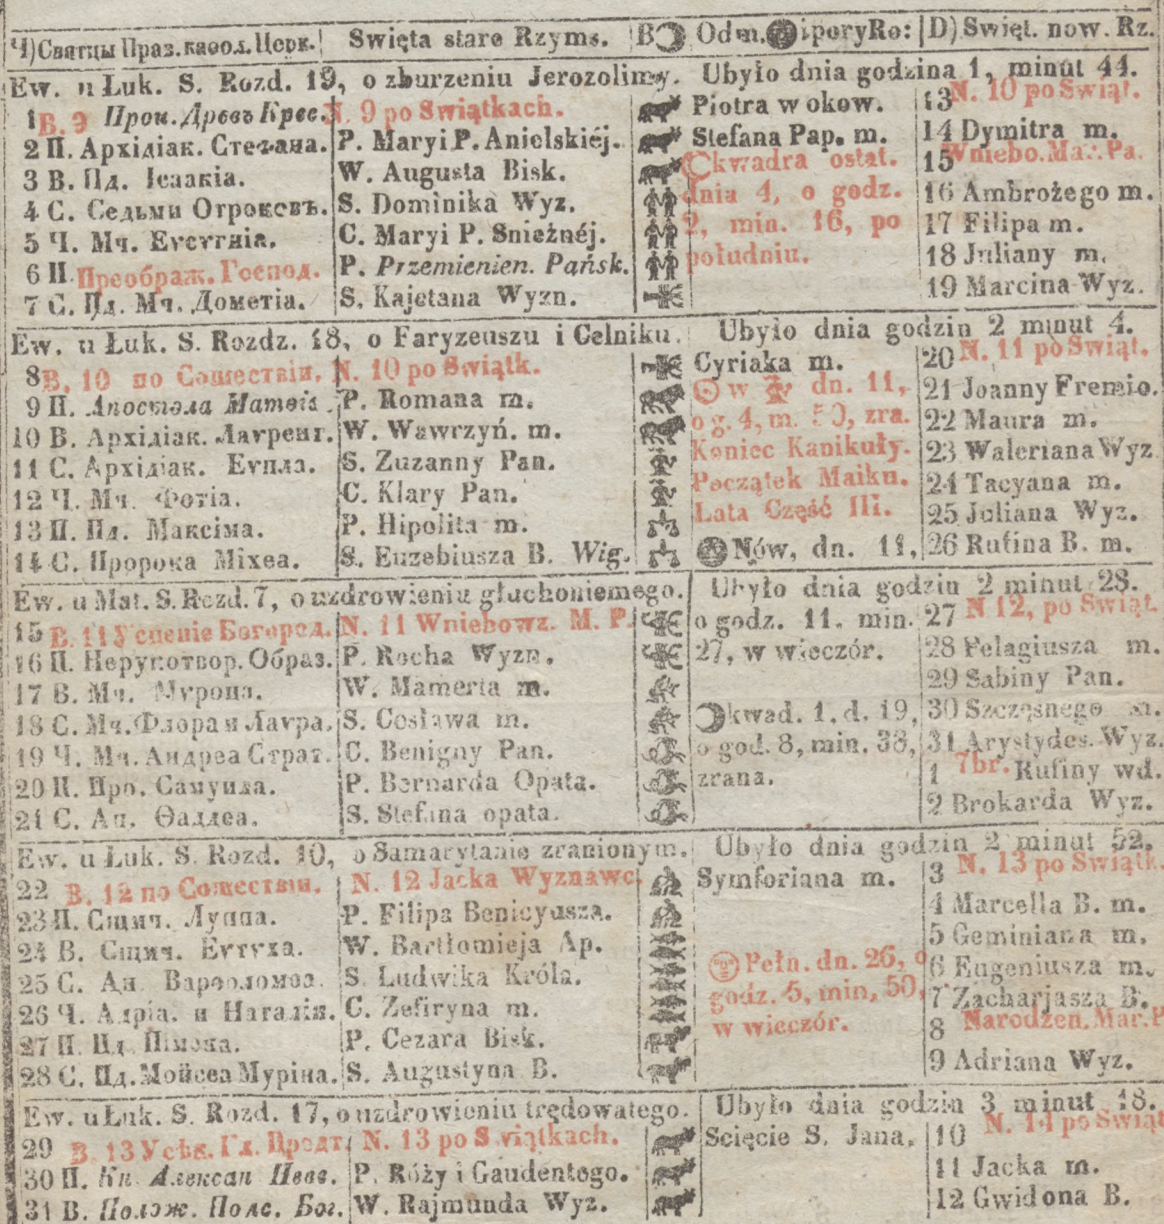 Ч) Святцы Праз. каѳол. Церк. | Swięta stare Rzyms. | B☾ Odm. iporyRo: | D) Swięt. now. Rz.
Ew. u Łuk. S. Rozd. 19, o zburzeniu Jerozolimy. Ubyło dnia godzina 1, minut 44.
1 В. 9 Прои. Древъ Крес. N. 9 po Swiątkach. Piotra w okow. 13 N. 10 po Swiąt.
2 П. Архідіак. Стефана. P. Maryi P. Anielskiéj. Stefana Pap. m. 14 Dymitra m.
3 В. Пд. Ісаакіа. W. Augusta Bisk. kwadra ostat. 15 Wniebo. Mar. Pa.
4 С. Седьми Отроковъ. S. Dominika Wyz. dnia 4, o godz. 16 Ambrożego m.
5 Ч. Мч. Еусугніа. C. Maryi P. Snieżnéj. 2, min. 16, po 17 Filipa m.
6 П. Преображ. Господ. P. Przemienien. Pańsk. południu. 18 Juliany m.
7 С. Пд. Мч. Дометіа. S. Kajetana Wyzn. 19 Marcina Wyz.
Ew. u Łuk. S. Rozdz. 18, o Faryzeuszu i Celniku. Ubyło dnia godzin 2 minut 4.
8 В. 10 по Сошествіи. N. 10 po Swiątk. Cyriaka m. 20 N. 11 po Swiąt.
9 П. Апостола Матѳіа. P. Romana m. w dn. 11, 21 Joanny Fremio.
10 В. Архідіак. Лаврент. W. Wawrzyń. m. o g. 4, m. 50, zra. 22 Maura m.
11 С. Архідіак. Еупла. S. Zuzanny Pan. Koniec Kanikuły. 23 Waleriana Wyz
12 Ч. Мч. Фотіа. C. Klary Pan. Początek Maiku. 24 Tacyana m.
13 П. Пд. Максіма. P. Hipolita m. Lata Część III. 25 Juliana Wyz.
14 С. Пророка Міхеа. S. Euzebiusza B. Wig. Nów, dn. 11, 26 Rufina B. m.
Ew. u Mat. S. Rozd. 7, o uzdrowieniu głuchoniemego. Ubyło dnia godzin 2 minut 28.
15 В. 11 Успеніе Богород. N. 11 Wniebowz. M. P. o godz. 11. min. 27 N 12, po Swiąt.
16 П. Нерукотвор. Образ. P. Rocha Wyzn. 27, w wieczór. 28 Pelagiusza m.
17 В. Мч. Мурона. W. Mamerta m. 29 Sabiny Pan.
18 С. Мч. Флора и Лаура. S. Cosława m. kwad. 1. d. 19, 30 Szczęsnego m.
19 Ч. Мч. Андреа Страт. C. Benigny Pan. o god. 8, min. 38, 31 Arystydes. Wyz.
20 П. Про. Самуила. P. Bernarda Opata. zrana. 1 7br. Rufiny wd.
21 С. Ап. Ѳаддеа. S. Stefana opata. 2 Brokarda Wyz.
Ew. u Łuk. S. Rozd. 10, o Samarytanie zranionym. Ubyło dnia godzin 2 minut 52.
22 В. 12 по Сошествіи. N. 12 Jacka Wyznawc. Symforiana m. 3 N. 13 po Swiątk.
23 П. Сщмч. Луппа. P. Filipa Benicyusza. 4 Marcella B. m.
24 В. Сщмч. Еутуха. W. Bartłomieja Ap. 5 Geminiana m.
25 С. Ап. Варѳоломеа. S. Ludwika Króla. Pełn. dn. 26, o 6 Eugeniusza m.
26 Ч. Адріа. и Наталіи. C. Zefiryna m. godz. 5, min, 50, 7 Zacharjasza B.
27 П. Пд. Пімена. P. Cezara Bisk. w wieczór. 8 Narodzen. Mar. P
28 С. Пд. Мойсеа Муріна. S. Augustyna B. 9 Adriana Wyz.
Ew. u Łuk. S. Rozd. 17, o uzdrowieniu trędowatego. Ubyło dnia godzin 3 minut 18.
29 В. 13 Усѣк. Гл. Предт. N. 13 po Swiątkach. Scięcie S. Jana. 10 N. 14 po Swiąt
30 П. Кн. Алексан Невс. P. Róży i Gaudentego. 11 Jacka m.
31 В. Полож. Пояс. Бог. W. Rajmunda Wyz. 12 Gwidona B.